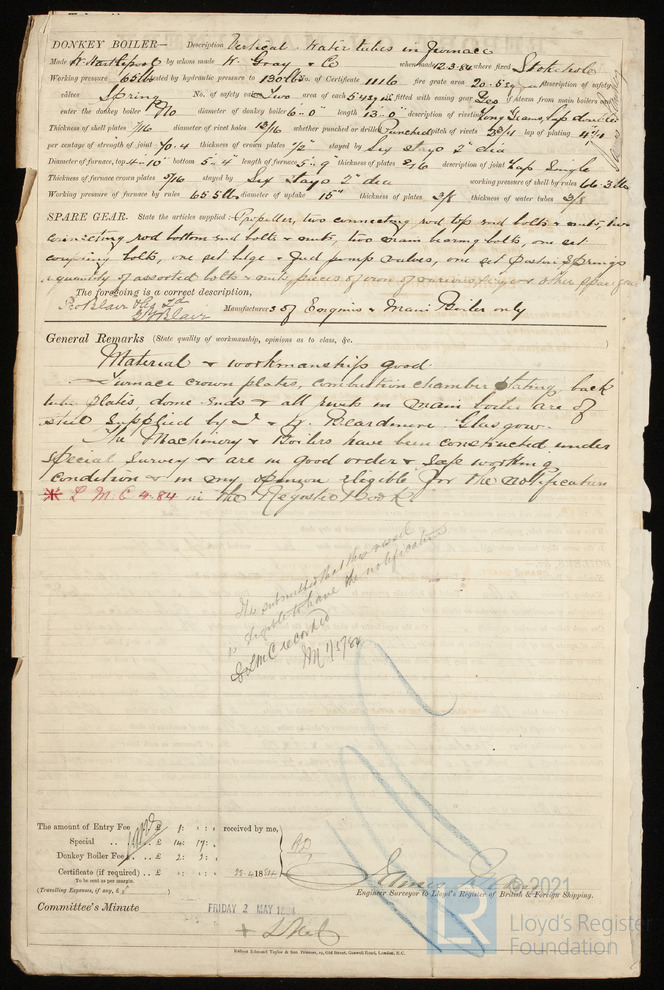 DONKEY BOILER— Description Vertical Water tubes in furnace
Made W. Hartlepool by whom made W. Gray & Co when made 12.3.84 where fixed Stokehole
Working pressure 65 lbs tested by hydraulic pressure to 130 lbs No. of Certificate 1116 fire grate area 20.5 sq Description of safety
valves Spring No. of safety valves Two area of each 5.43 sq if fitted with easing gear Yes if steam from main boilers can
enter the donkey boiler No diameter of donkey boiler 6'-0" length 13'-0" description of riveting Long Seams, Lap double
Thickness of shell plates 7/16 diameter of rivet holes 13/16 whether punched or drilled Punched pitch of rivets 2 3/4 lap of plating 4 1/4
per centage of strength of joint 70.4 thickness of crown plates 1/2" stayed by Six stays 2" dia
Diameter of furnace, top 4-10" bottom 5-4" length of furnace 5-9" thickness of plates 7/16 description of joint Lap Single
Thickness of furnace crown plates 7/16 stayed by Six stays 2" dia working pressure of shell by rules 66.3 lbs
Working pressure of furnace by rules 65.5 lbs diameter of uptake 15" thickness of plates 3/8 thickness of water tubes 3/8
SPARE GEAR. State the articles supplied:— Propeller, two connecting rod top end bolts & nuts, two
connecting rod bottom end bolts & nuts, two main bearing bolts, one set
coupling bolts, one set bilge & feed pump valves, one set piston springs
a quantity of assorted bolts & nuts, pieces of iron of various sizes & other spare gear
The foregoing is a correct description,
Geo Blair Manufacturers of Engines & Main Boiler only
General Remarks (State quality of workmanship, opinions as to class, &c.
Material & workmanship good.
Furnace crown plates, combustion chamber plating, back
tube plates, dome ends & all rivets in main boiler are of
steel supplied by W. Beardmore Glasgow.
The Machinery & Boilers have been constructed under
special Survey & are in good order & safe working
condition & in my opinion eligible for the notification
L M C 4.84 in the Register Book.
It is submitted that this vessel
is eligible to have the notification
LMC recorded
1/5/84
The amount of Entry Fee .. £ 1 : : received by me,
Special .. .. £ 14 : 17 :
Donkey Boiler Fee .. .. £ 2 : 2 :
Certificate (if required) .. £ : : 25.4.1884
To be sent as per margin.
(Travelling Expenses, if any, £ )
James
Engineer Surveyor to Lloyd's Register of British & Foreign Shipping.
Committee's Minute FRIDAY 2 MAY 1884
+ LMC
© 2021
LR
Lloyd's Register
Foundation